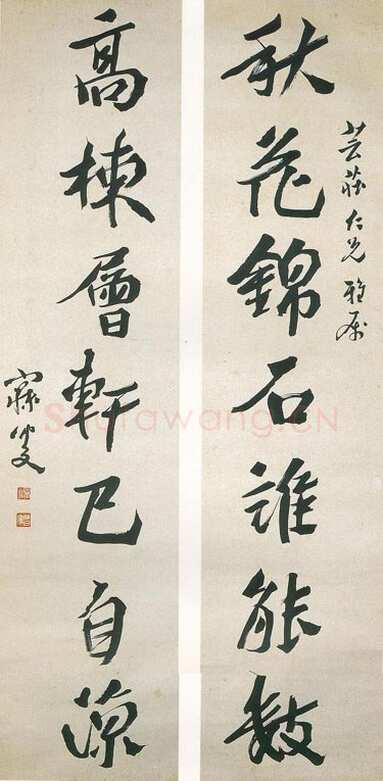 芸莊仁兄雅属
秋花錦石誰能數
高棟層軒已自涼
寐叟
Shufawang.CN